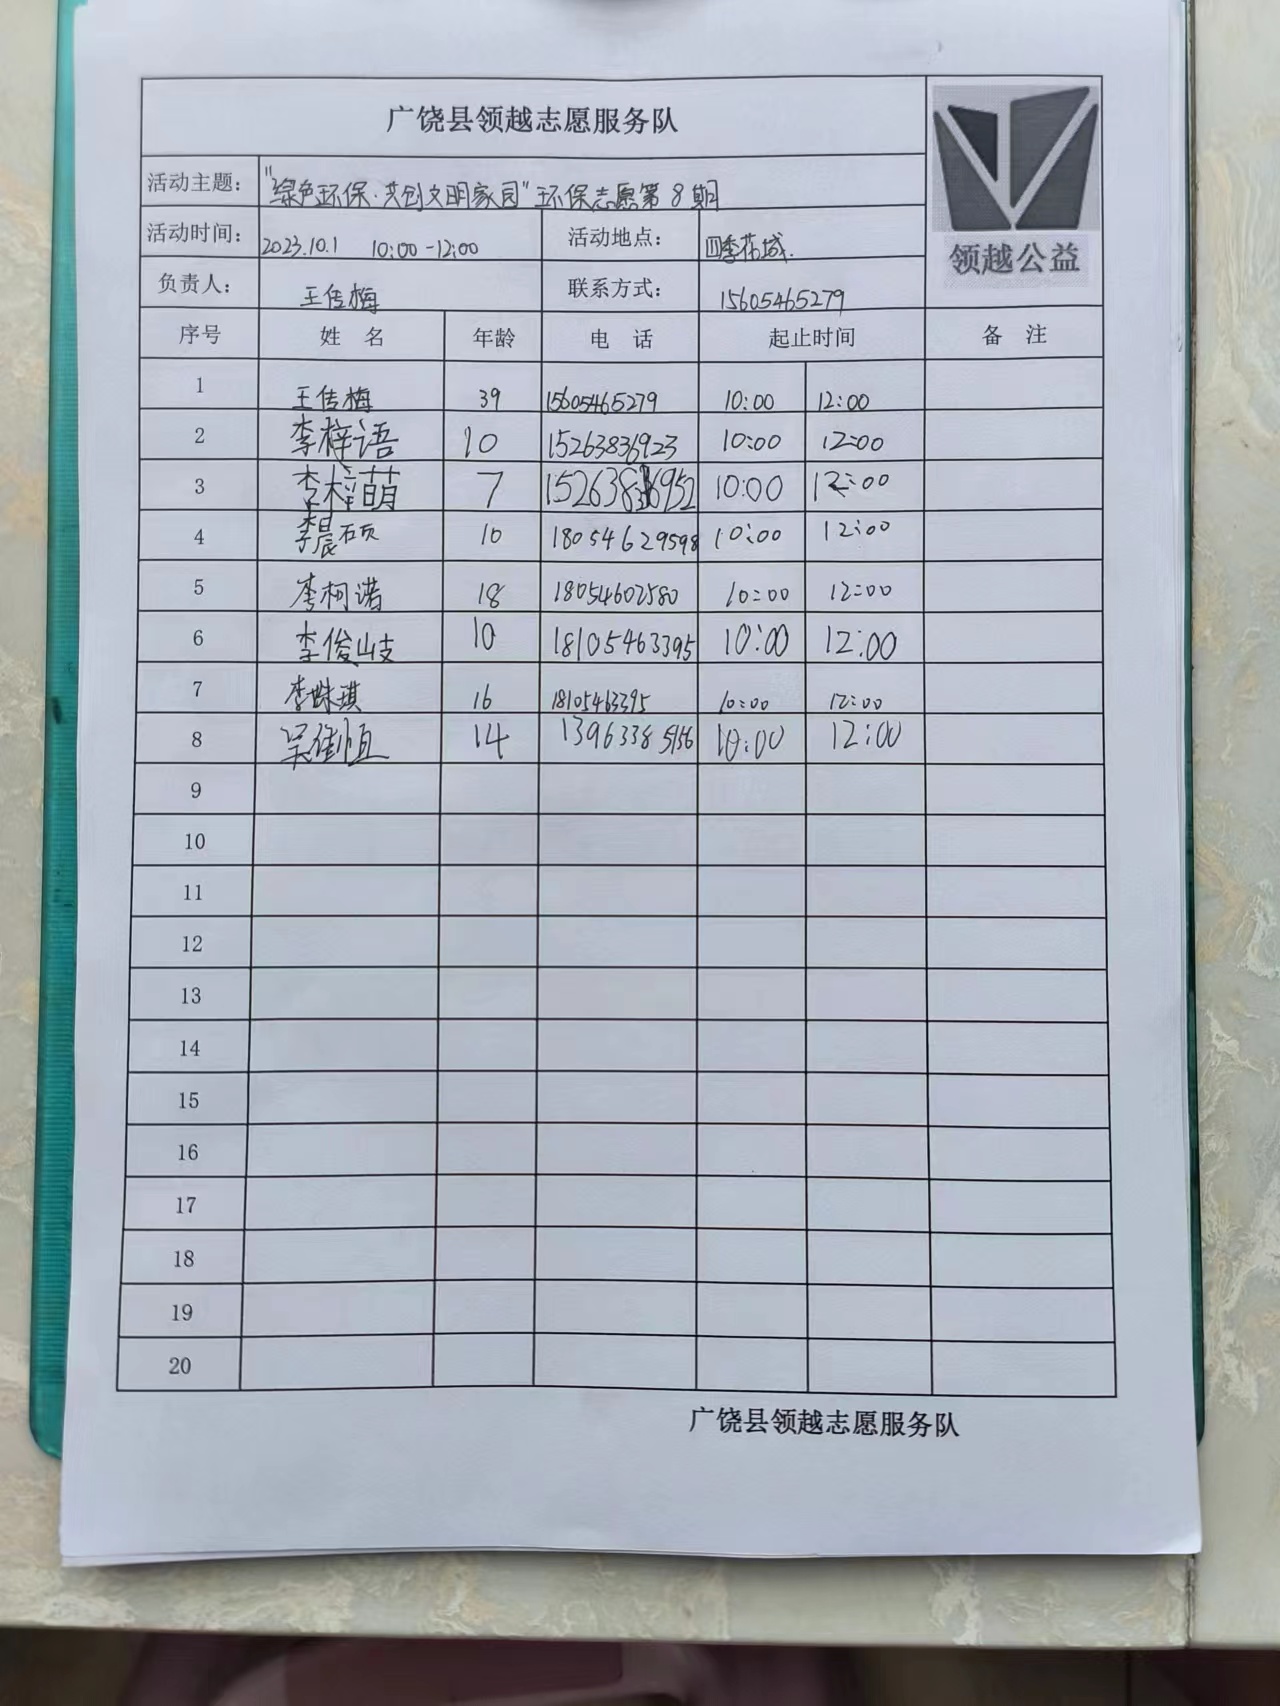 广饶县领越志愿服务队
领越公益
活动主题： "绿色环保·共创文明家园"环保志愿第8期
活动时间： 2023.10.1 10:00-12:00 活动地点： 四季花城.
负责人： 王传梅 联系方式： 15605465279
序号 姓 名 年龄 电 话 起止时间 备 注
1 王传梅 39 15605465279 10:00 12:00
2 李梓语 10 15263836923 10:00 12:00
3 李梓萌 7 10:00 12:00
4 李晨硕 10 18054629598 10:00 12:00
5 李柯诺 18 18054602580 10:00 12:00
6 李俊岐 10 18105463395 10:00 12:00
7 李姝琪 16 18105463395 10:00 12:00
8 14 10:00 12:00
9
10
11
12
13
14
15
16
17
18
19
20
广饶县领越志愿服务队